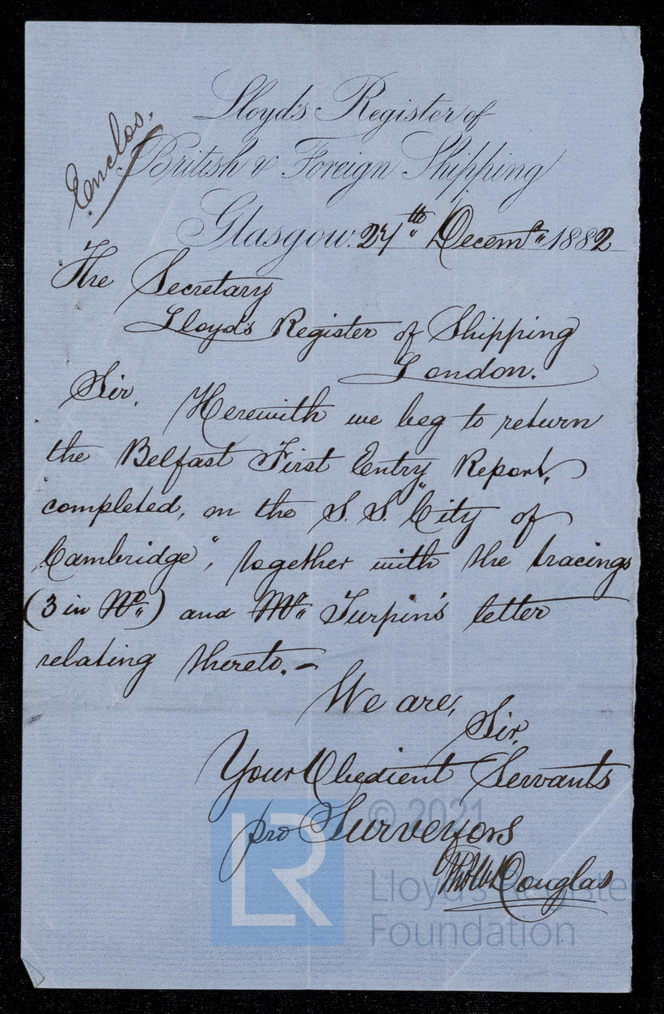 Enclos.
Lloyd's Register of
British & Foreign Shipping
Glasgow. 27th Decemr 1882
The Secretary
Lloyd's Register of Shipping
London.
Sir. Herewith we beg to return
the Belfast First Entry Report,
completed, on the S.S. "City of
Cambridge", together with the tracings
(3 in No.) and Mr Turpin's letter
relating thereto.-
We are,
Sir,
Your Obedient Servants
pro Surveyors
Douglas
LR
© 2021
Lloyd's Register
Foundation